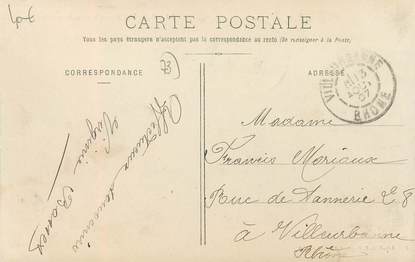 CARTE POSTALE
Tous les pays étrangers n'acceptent pas la correspondance au recto (Se renseigner à la Poste)
CORRESPONDANCE
ADRESSE
73
VILLEURBANNE
RHONE
Affectueux souvenirs
Virginie
Madame
Francis Moriaux
Rue de Tannerie E 8
à Villeurbanne
Rhône